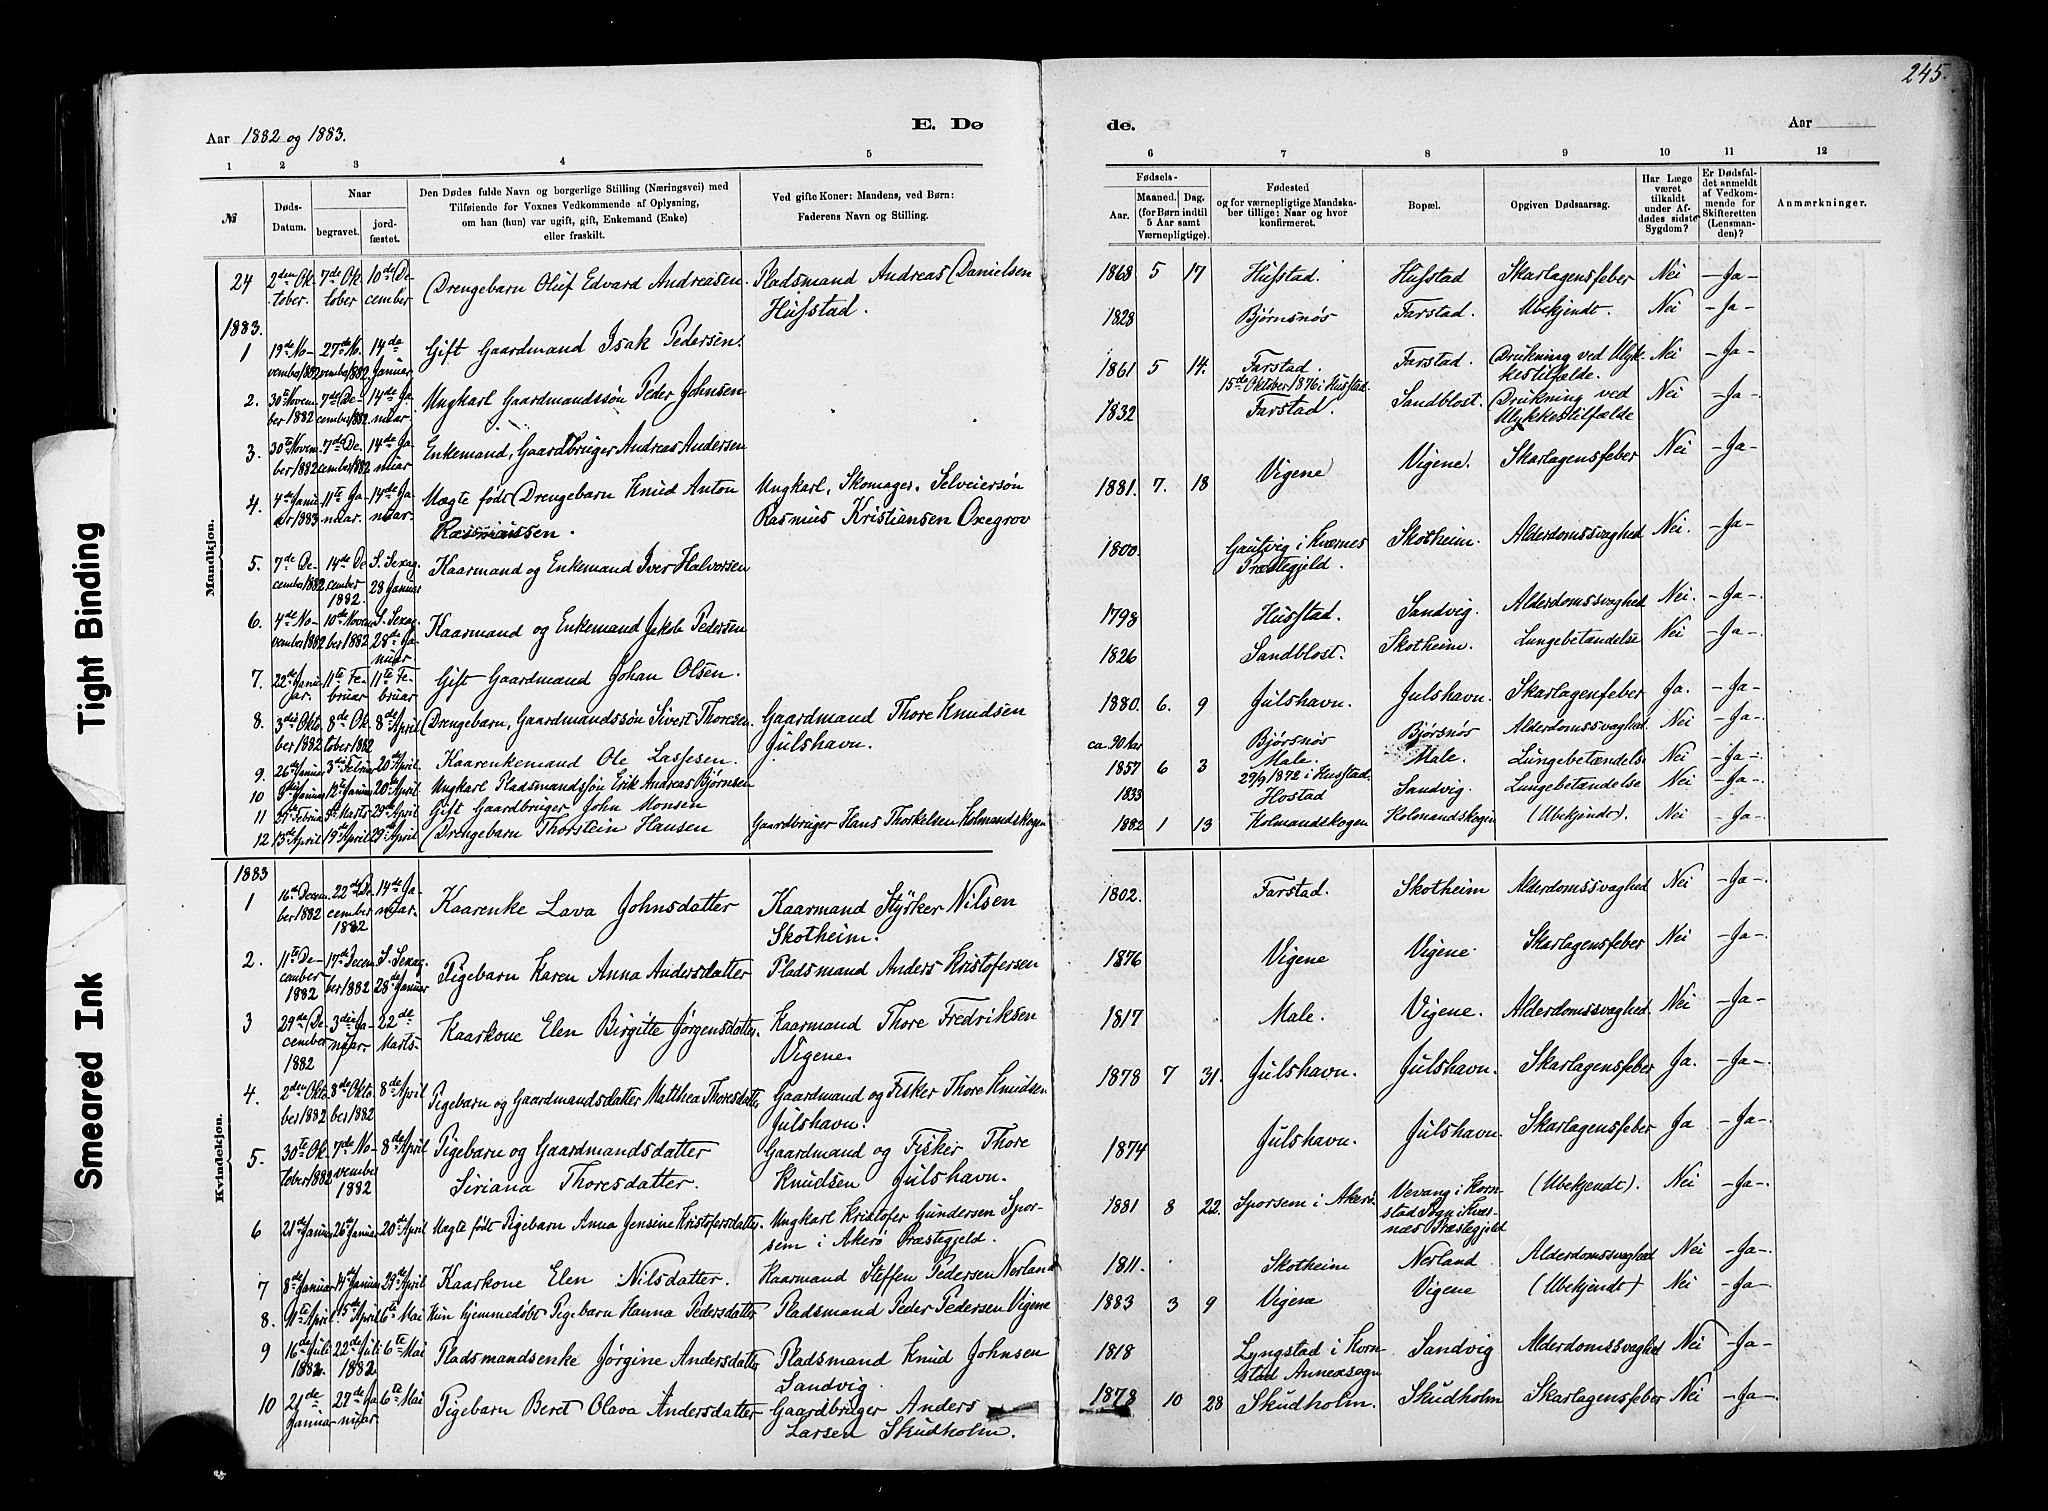 245.
Aar 1882 og 1883.
E. Dø
de.
Aar
1 2 3 4 5
6 7 8 9 10 11 12
№
Døds-Datum.
Naar
begravet.
jordfæstet.
Den Dødes fulde Navn og borgerlige Stilling (Næringsvei) med
Tilføiende for Voxnes Vedkommende af Oplysning,
om han (hun) var ugift, gift, Enkemand (Enke)
eller fraskilt.
Ved gifte Koner: Mandens, ved Børn:
Faderens Navn og Stilling.
Fødsels-
Aar.
Maaned. Dag.
(for Børn indtil
5 Aar samt
Værnepligtige).
Fødested
og for værnepligtige Mandska-
ber tillige: Naar og hvor
konfirmeret.
Bopæl.
Opgiven Dødsaarsag.
Har Læge
været
tilkaldt
under Af-
dødes sidste
Sygdom?
Er Dødsfal-
det anmeldt
af Vedkom-
mende for
Skifteretten
(Lensman-
den)?
Anmærkninger.
Mandkjøn.
24 2den Oktober. 7de Oktober 10de December Drengebarn Oluf Edvard Andreasen. Pladsmand Andreas Danielsen Hufstad. 1868 5 17 Hufstad. Hufstad Skarlagensfeber Nei –Ja–
1883.
1 19de November 1882 27de November 1882 14de Januar Gift Gaardmand Isak Pedersen. 1828 Bjørnsnøs Farstad. Ubekjendt. Nei –Ja–
2. 30te November 1882 7de December 1882 14de Januar. Ungkarl Gaardmandssøn Peder Johnsen 1861 5 14. Farstad. 15de Oktober 1876 i Husstad. Farstad. Drukning ved Ulykkestilfælde. Nei –Ja–
3. 30te November 1882 7de December 1882 14de Januar Enkemand, Gaardbruger Andreas Andersen 1832 Farstad. Sandblost. Drukning ved Ulykkestilfælde Nei –Ja–
4. 4de Januar 1883 11te Januar. 14de Januar. Uægte født Drengebarn Knud Anton Rasmussen. Ungkarl, Skomager, Selveiersøn Rasmus Kristiansen Oxegrov 1881. 7. 18 Vigene Vigene. Skarlagensfeber Nei –Ja–
5. 7de December 1882 14de December 1882. S. Sexag. 28 Januar Kaarmand og Enkemand Iver Halvorsen 1800. Gautvig i Kvernes Præstegjeld. Skotheim. Alderdomssvaghed Nei. –Ja–
6. 4de November 1882 10de November 1882 S. Sexag. 28de Januar Kaarmand og Enkemand Jakob Pedersen 1798 Husstad. Sandvig. Alderdomssvaghed Nei. –Ja–
7. 22de Januar. 11te Februar 11te Februar Gift Gaardmand Johan Olsen. 1826 Sandblost. Skotheim. Lungebetandelse Nei –Ja–.
8. 3die Oktober 1882 8de Oktober 1882 8de April Drengebarn, Gaardmandssøn Sivert Thoresen Gaardmand Thore Knudsen Julshavn. 1880. 6. 9 Julshavn. Julshavn. Skarlagenfeber Ja. –Ja–
9. 26de Januar 3die Februar 20de April. Kaarenkemand Ole Lassesen. ca. 90 Aar Bjørsnøs Bjørsnøs Alderdomssvaghed Nei –Ja–.
10 5te Januar 12te Januar 20de April Ungkarl Pladsmandssøn Erik Andreas Bjørnsen 1857 6 3 Male. 29/9 1872 i Husstad. Male. Lungebetændelse Nei –Ja–
11 Februar Marts 29de April Gift Gaardbruger John Monsen 1833 Hostad Sandvig. Lungebetændelse Nei –Ja–.
12 13de April 19de April 29de April Drengebarn Thorstein Hansen Gaardbruger Hans Thorkelsen Kolmandskogen 1882 1 13 Kolmandskogen Kolmandskogen (Ubekjendt). Nei –Ja–
Kvindekjøn.
1883
1 16de December 1882 22de December 1882 14de Januar. Kaarenke Lava Johnsdatter Kaarmand Styrker Nilsen Skotheim. 1802. Farstad. Skotheim Alderdomssvaghed Nei –Ja–.
2. 11te December 1882 17de December 1882 S. Sexag. 28de Januar Pigebarn Karen Anna Andersdatter Pladsmand Anders Kristofersen 1876 Vigene Vigene. Skarlagensfeber Nei –Ja–
3 29de December 1882 3die Januar 22de Marts Kaarkone Elen Birgitte Jørgensdatter. Kaarmand Thore Fredriksen Vigene. 1817 Male. Vigene. Alderdomssvaghed. Nei –Ja–
4. 2den Oktober 1882 8de Oktober 1882 8de April Pigebarn og Gaardmandsdatter Matthea Thoresdatter Gaardmand og Fisker Thore Knudsen Julshavn. 1878 7 31. Julshavn. Julshavn. Skarlagensfeber Ja. –Ja–.
5. 30te Oktober 1882 7de November 1882 8de April Pigebarn og Gaardmandsdatter Siriana Thoresdatter. Gaardmand og Fisker Thore Knudsen Julshavn. 1874 Julshavn. Julshavn. Skarlagensfeber Ja –Ja–.
6 21de Januar 26de Januar 20de April Uægte født Pigebarn Anna Jensine Kristofersdatter. Ungkarl Kristofer Gundersen Sporsem i Akerø Præstegjeld. 1881 8 22. Sporsem i Akerø. Vevang i Kornstad Sogn i Kvernæs Præstegjeld (Ubekjendt). Nei –Ja–.
7 8de Januar Januar 29de April Kaarkone Elen Nilsdatter. Kaarmand Steffen Pedersen Nerland 1811. Skotheim Nerland Alderdomssvaghed Nei –Ja–.
8. 11te April 15de April 6te Mai Kun hjemmedøbt Pigebarn Hanna Pedersdatter Pladsmand Peder Pedersen Vigene 1883 3 9 Vigene Vigene (Ubekjendt) Nei –Ja–
9 16de Juli 1882. 22de Juli 1882 6te Mai Pladsmandsenke Jørgine Andersdatter Pladsmand Knud Johnsen Sandvig. 1818 Lyngstad i Kornstad Annexsogn Sandvig Alderdomssvaghed Nei –Ja–.
10 21de Januar 27de Januar 6te Mai Pigebarn Beret Olava Andersdatter Gaardbruger Anders Larsen Skudholm. 1878 10 28 Skudholm. Skudholm Skarlagensfeber Nei –Ja–.
Tight Binding
Smeared Ink